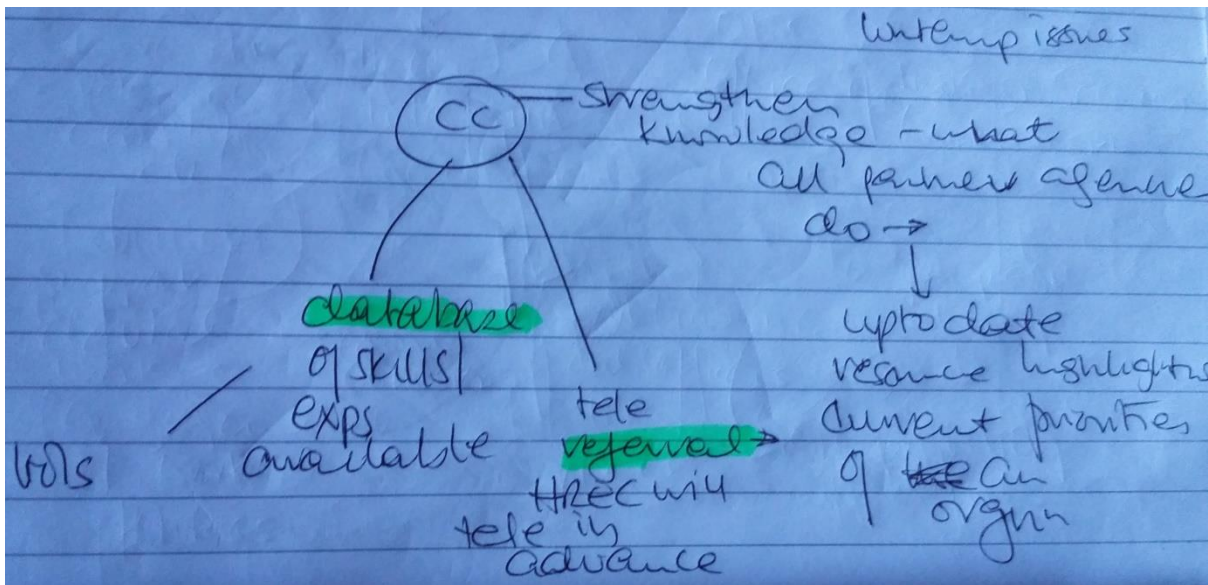 issues
CC
strengthen
knowledge - what
all partner agencie
do →
upto date
resource highlights
current priorities
of an
orgnn
database
of skills/
exps
available
vols
tele
referral →
HREC will
tele in
advance